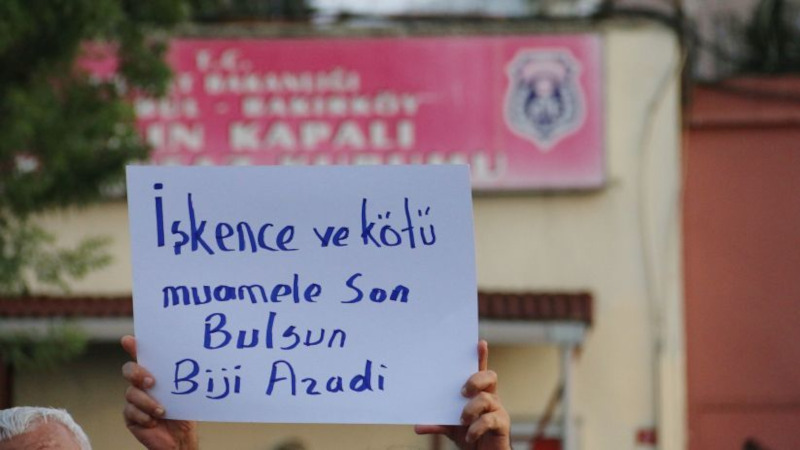 T.C.
BAKANLIĞI
BAKIRKÖY
KAPALI
KURUMU
İşkence ve kötü
muamele son
Bulsun
Biji Azadi